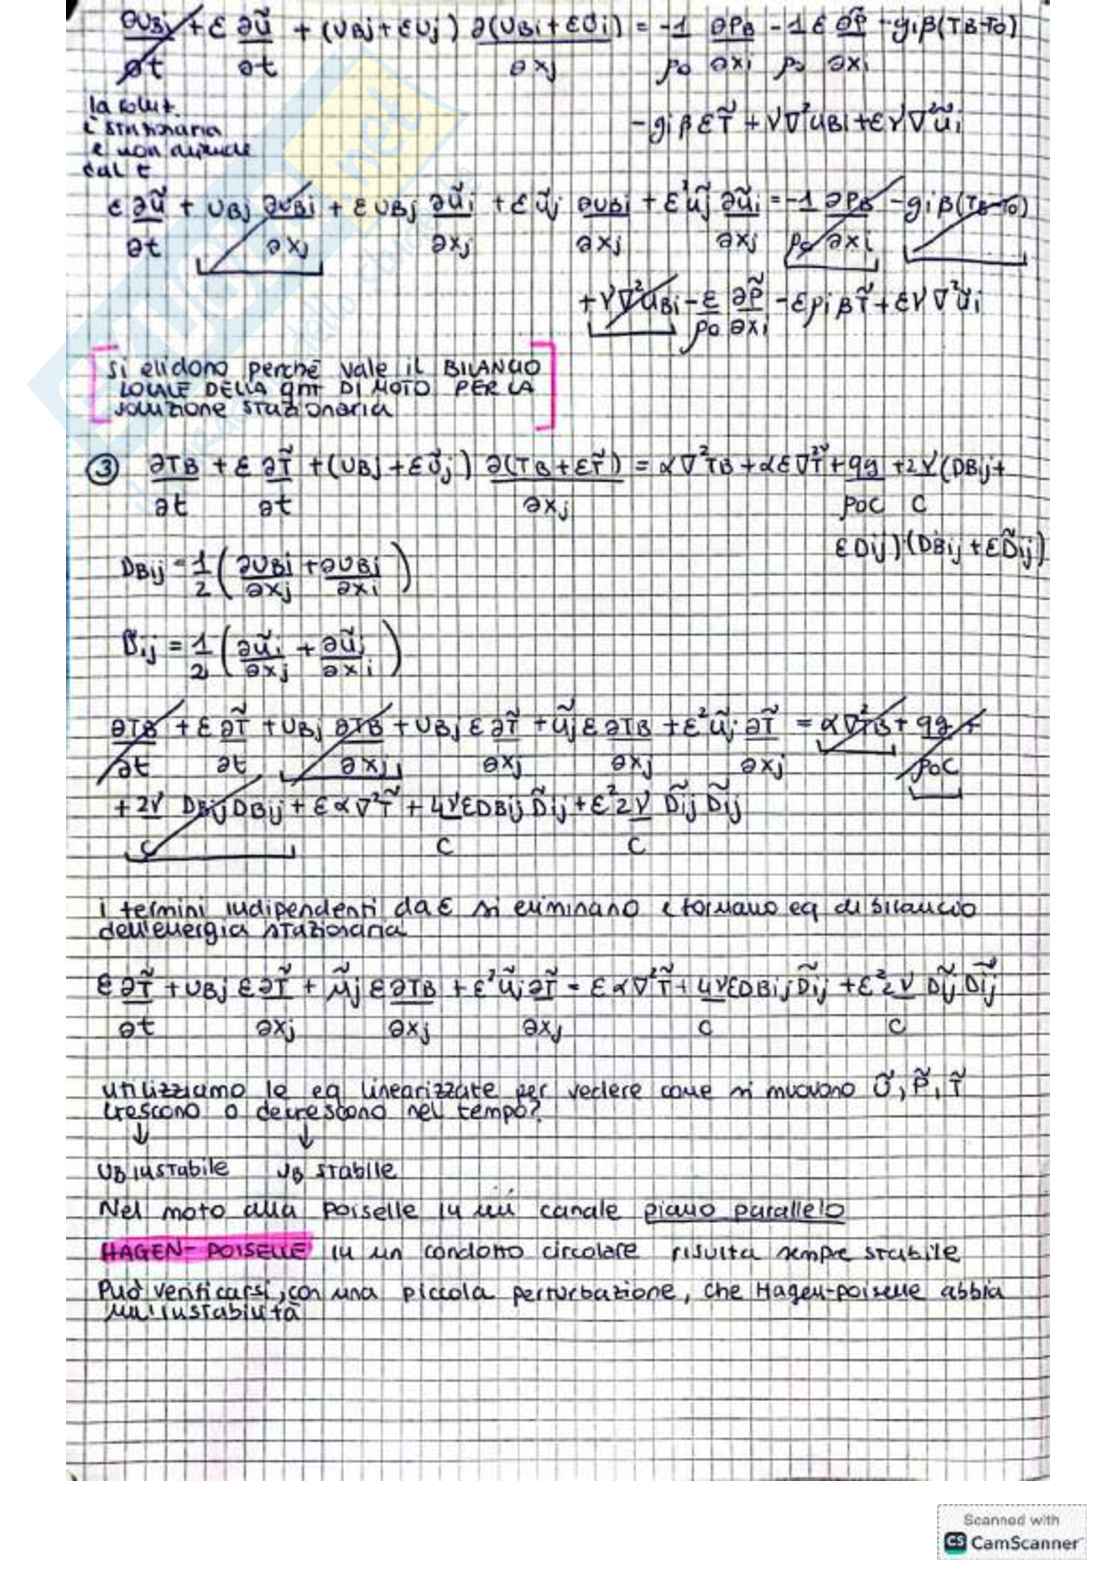 ∂UBi/∂t + ε ∂ũ/∂t + (UBj + εUj) ∂(UBi + εũi)/∂xj = -1/ρ0 ∂PB/∂xi - 1/ρ0 ε ∂P̃/∂xi - giβ(TB-T0)
la soluz.
è stazionaria
e non dipende
dal t
- giβεT̃ + ν∇²UBi + εν∇²ũi
ε ∂ũ/∂t + UBj ∂UBi/∂xj + εUBj ∂ũi/∂xj + εũj ∂UBi/∂xj + ε²ũj ∂ũi/∂xj = -1/ρ0 ∂PB/∂xi - giβ(TB-T0)
+ ν∇²UBi - ε/ρ0 ∂P̃/∂xi - ερiβT̃ + εν∇²ũi
si elidono perchè vale il BILANCIO
LOCALE DELLA qnt DI MOTO PER LA
soluzione stazionaria
③ ∂TB/∂t + ε ∂T̃/∂t + (UBj + εŨj) ∂(TB + εT̃)/∂xj = α∇²TB + αε∇²T̃ + qg/ρ0c + 2ν/c (DBij +
εDij)(DBij + εD̃ij)
DBij = 1/2 (∂UBi/∂xj + ∂UBj/∂xi)
D̃ij = 1/2 (∂ũi/∂xj + ∂ũj/∂xi)
∂TB/∂t + ε ∂T̃/∂t + UBj ∂TB/∂xj + UBj ε ∂T̃/∂xj + ũj ε ∂TB/∂xj + ε²ũj ∂T̃/∂xj = α∇²TB + qg/ρ0c +
+ 2ν/c DBij DBij + εα∇²T̃ + 4ν/c εDBij D̃ij + ε² 2ν/c D̃ij D̃ij
i termini indipendenti da ε si eliminano e formano eq di bilancio
dell'energia stazionaria
ε ∂T̃/∂t + UBj ε ∂T̃/∂xj + μ̃j ε ∂TB/∂xj + ε²ũj ∂T̃/∂xj = εα∇²T̃ + 4ν/c εDBij D̃ij + ε² 2ν/c D̃ij D̃ij
utilizziamo le eq linearizzate per vedere come si muovono Ũ, P̃, T̃
crescono o decrescono nel tempo?
↓ ↓
UB instabile UB stabile
Nel moto alla Poiselle in un canale piano parallelo
HAGEN-POISELLE in un condotto circolare risulta sempre stabile
Può verificarsi, con una piccola perturbazione, che Hagen-poiselle abbia
un'instabilità
Scanned with
CS CamScanner